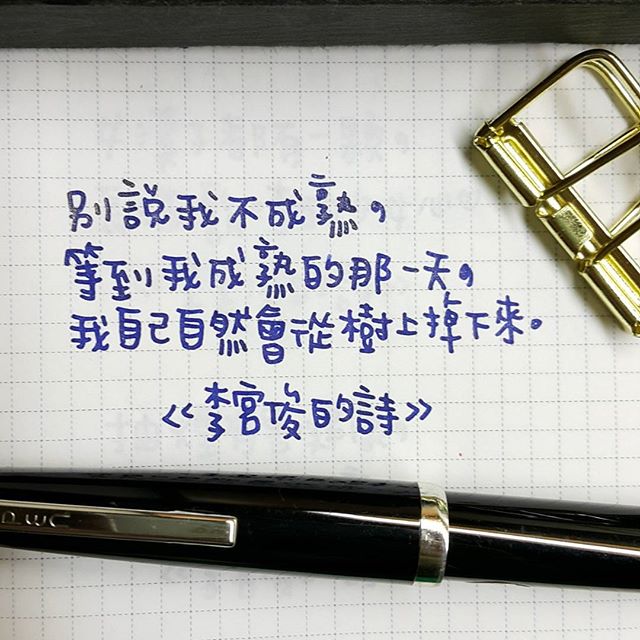 別說我不成熟，
等到我成熟的那一天，
我自己自然會從樹上掉下來。
《李宮俊的詩》